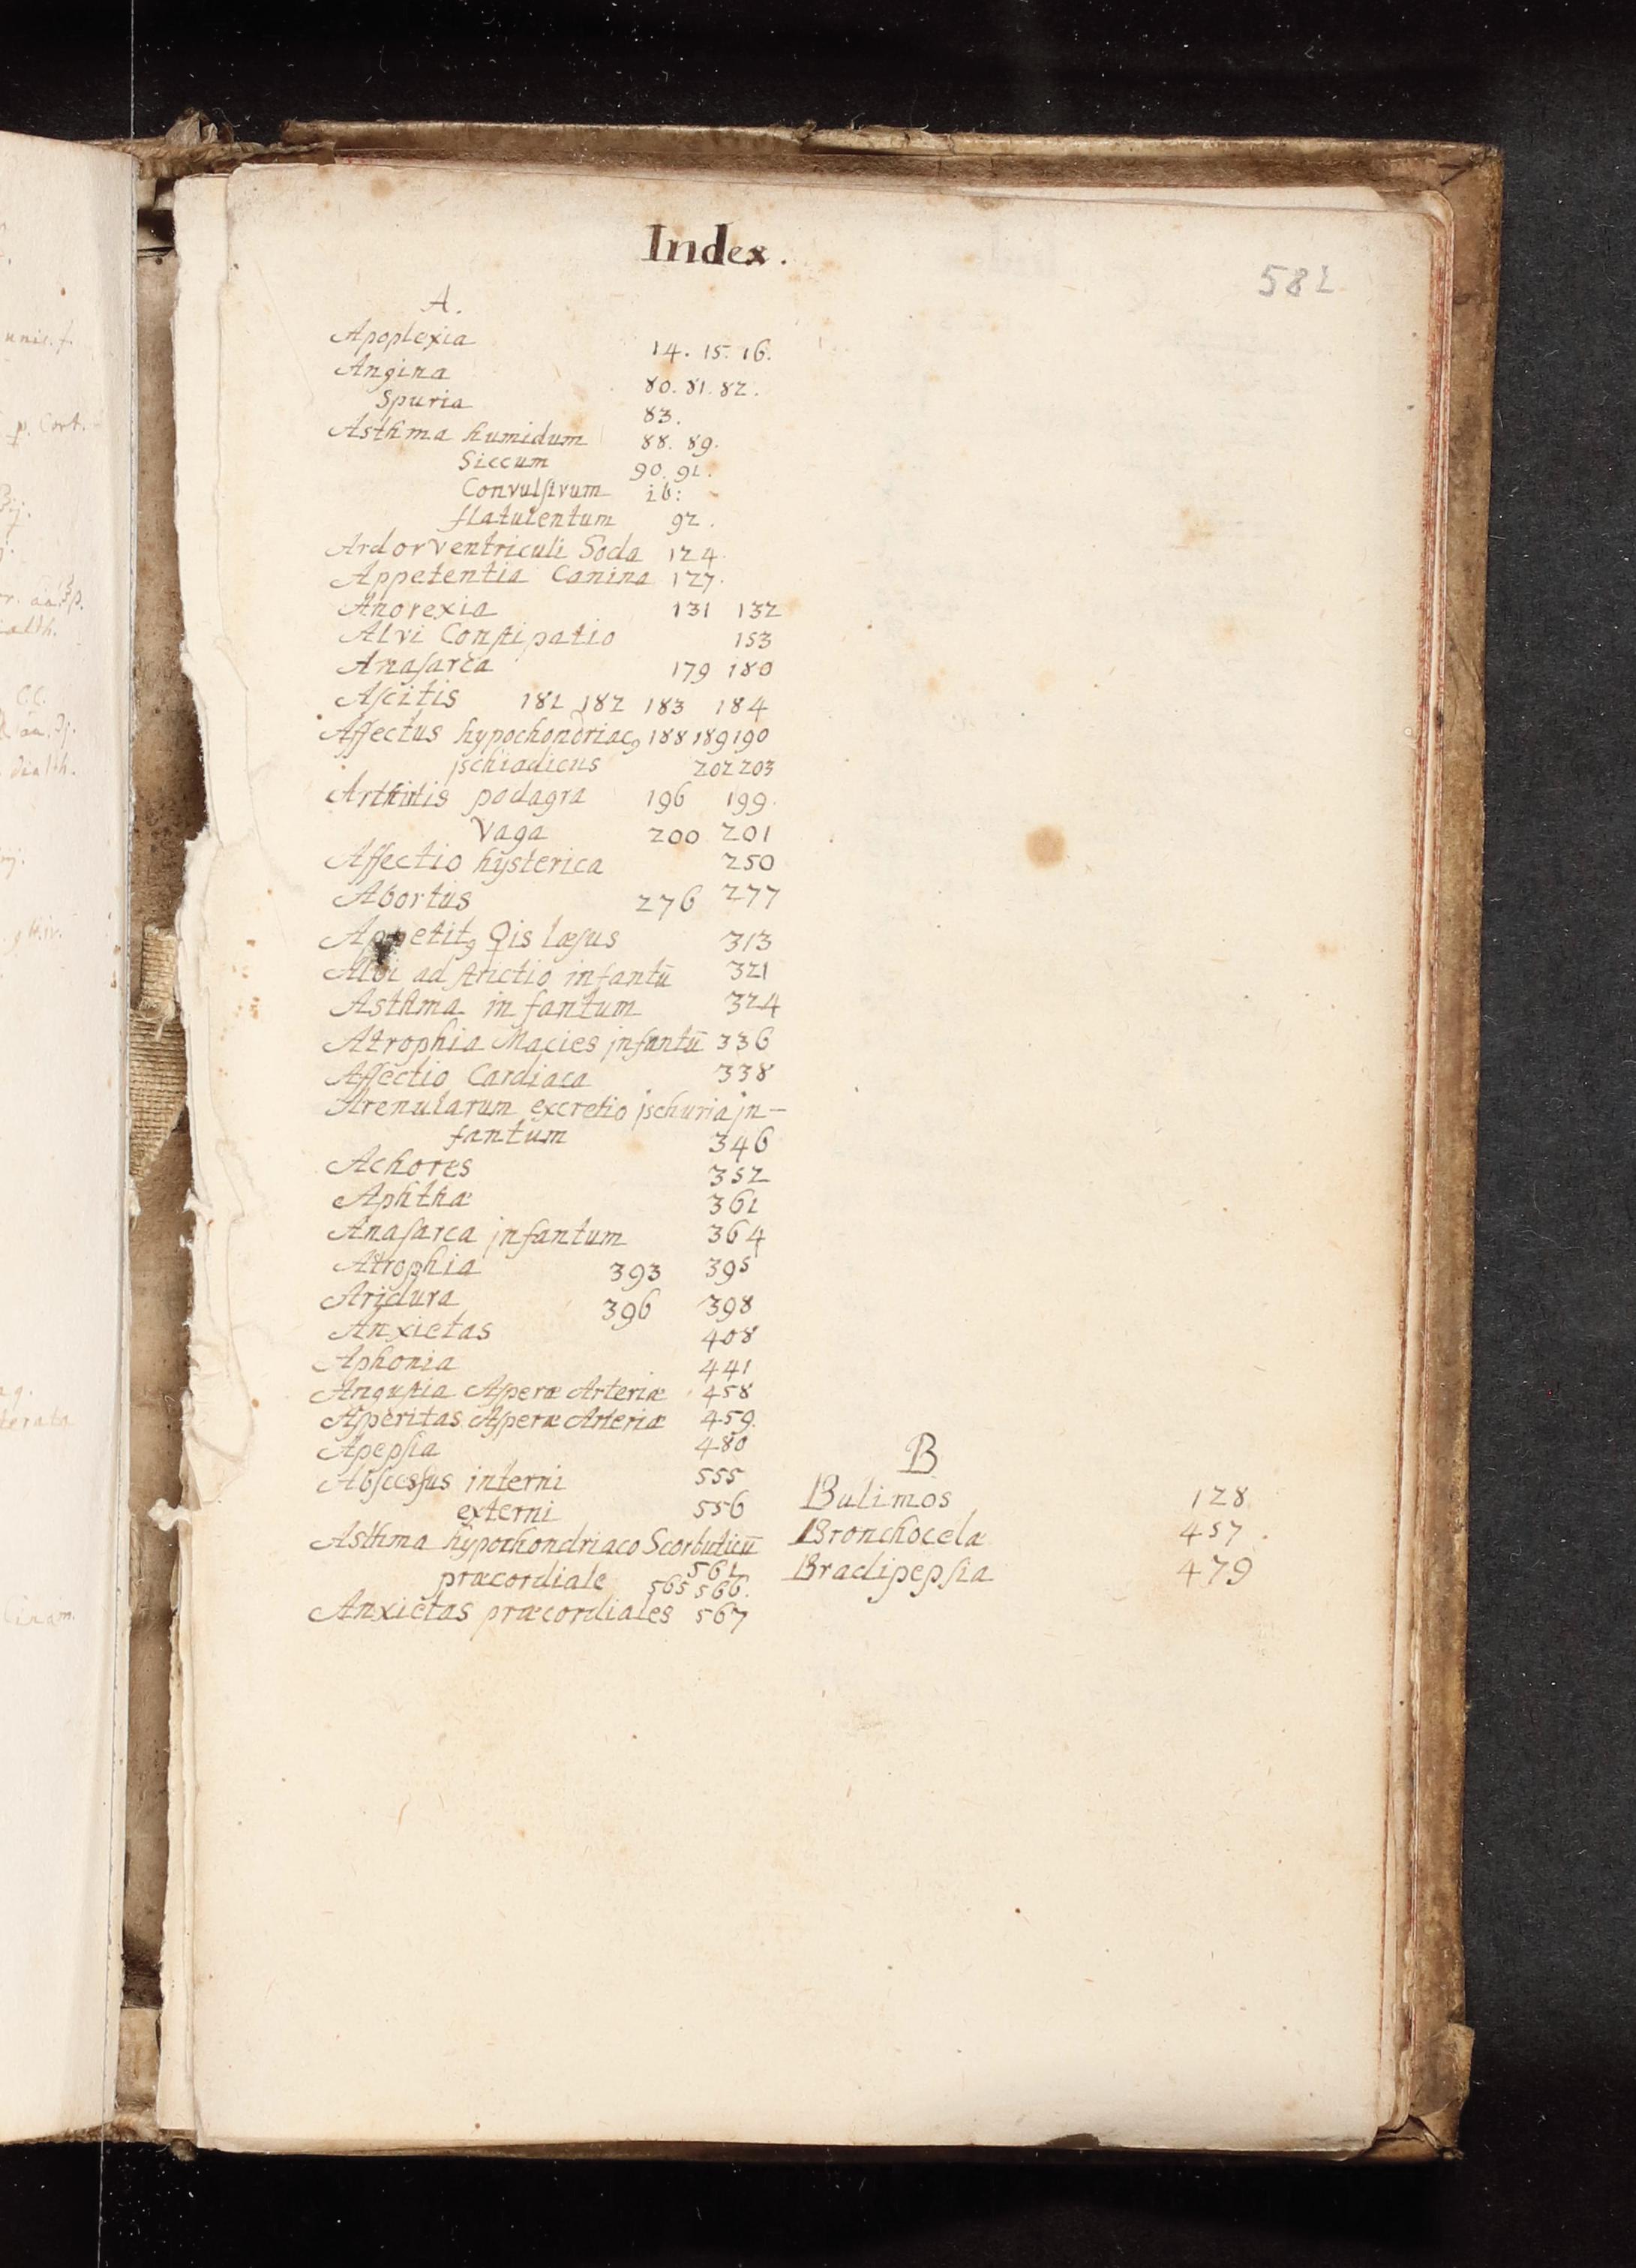 Index.
581
A.
Apoplexia 14. 15. 16.
Angina 80. 81. 82.
Spuria 83.
Asthma humidum 88. 89.
Siccum 90. 91.
Convulſivum ib:
flatulentum 92.
Ardor ventriculi Soda 124.
Appetentia Canina 127.
Anorexia 131 132
Alvi Conſtipatio 153
Anaſarca 179 180
Aſcitis 181 182 183 184
Affectus hypochondriacꝰ 188 189 190
jschiadicus 202 203
Arthritis podagra 196 199.
Vaga 200 201
Affectio hÿsterica 250
Abortus 276 277
Appetitꝰ ♀is læſus 313
Alvi adſtrictio infantū 321
Asthma infantum 324
Atrophia Macies jnfantū 336
Affectio Cardiaca 338
Arenularum excretio jschuria jn-
fantum 346
Achores 352
Aphthæ 361
Anaſarca jnfantum 364
Atrophia 393 395
Aridura 396 398
Anxietas 408
Aphonia 441
Anguſtia Aſperæ Arteriæ 458
Aſperitas Aſperæ Arteriæ 459.
Apepſia 480
Abſcesſus interni 555
externi 556
Asthma hÿpochondriaco Scorbuticū
561
præcordiale 565 566.
Anxietas præcordiales 567
B
Bulimos 128
Bronchocela 457.
Bradipepſia 479